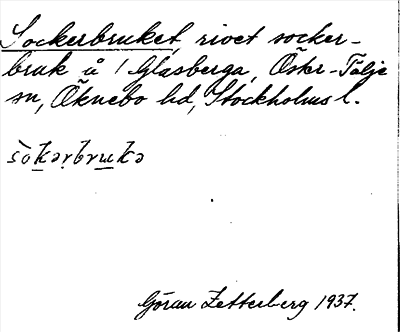 Sockerbruket, rivet socker-
bruk å 1 Glasberga, Öster-Tälje
sn, Öknebo hd, Stockholms l.
Göran Zetterberg 1937.